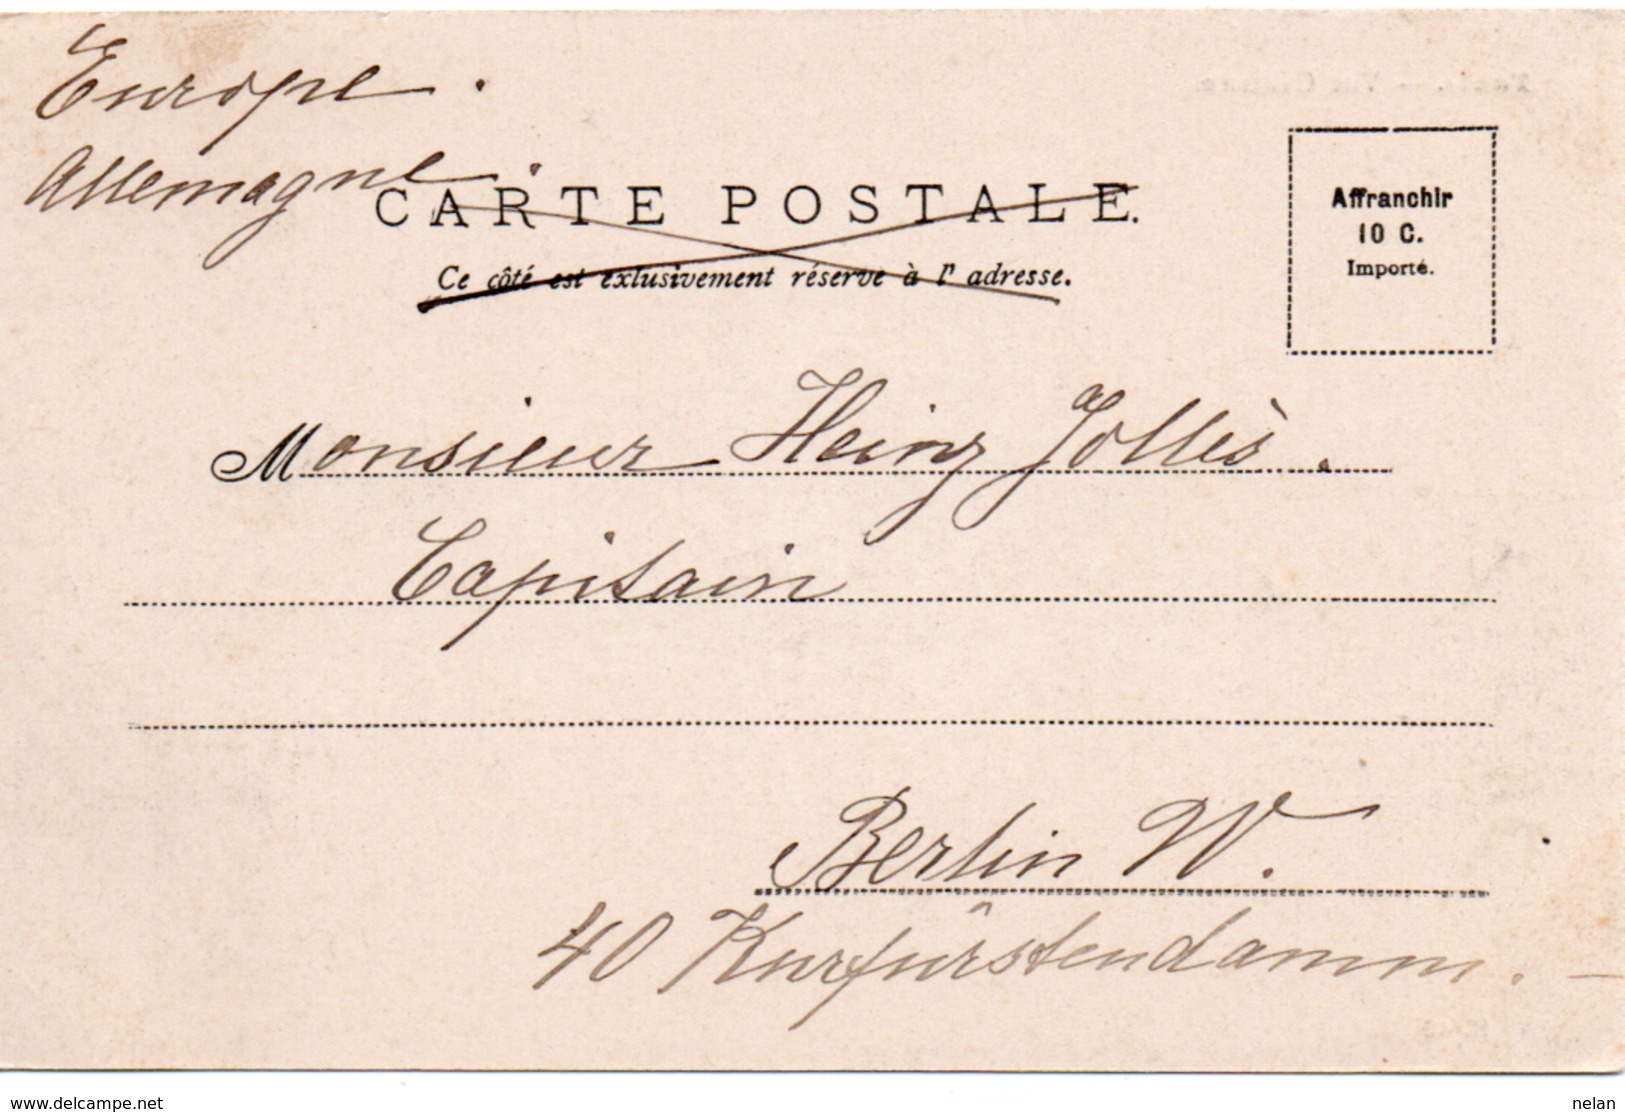 Europe.
Allemagne.
CARTE POSTALE.
Ce côté est exlusivement réserve à l' adresse.
Affranchir
10 C.
Importé.
Monsieur Heinz Jollès.
Capitain
Berlin W.
40 Kurfürstendamm.
www.delcampe.net
nelan